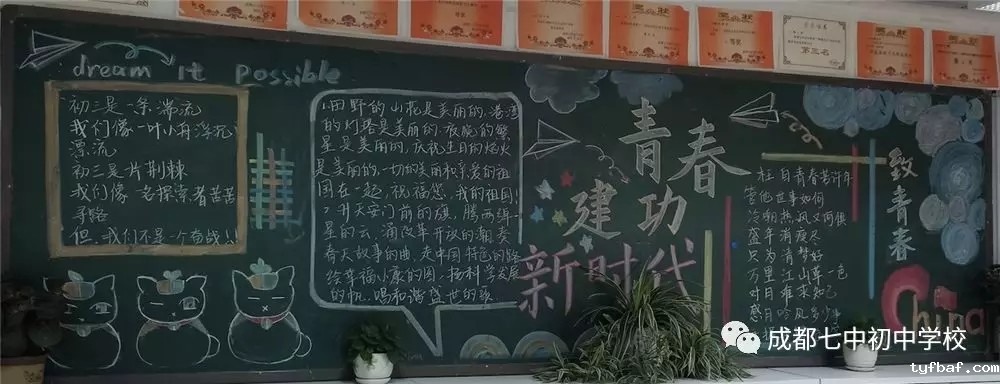 第三名
dream it possible
初三是一条湍流
我们像一叶小舟浮沉
漂流
初三是片荆棘
我们像一名探索者苦苦
寻路
但，我们不是一个奋战！！
田野的山花是美丽的，港湾
的灯塔是美丽的，夜晚的繁
星是美丽的，庆祝生日的焰火
是美丽的，一切的美丽和亲爱的祖
国在一起，祝福您，我的祖国！
升天安门前的旗，腾两绯
星的云，涌改革开放的潮，奏
春天故事的曲，走中国特色的路
绘幸福小康的图，扬科学发展
的帆，唱和谐盛世的歌
青春
建功
新时代
枉自青春若许年
管他世事如何
冷朝热风又何惧
盛年消瘦尽
只为清梦好
万里江山草一色
对月难求知己
愿月吟风多少事
致青春
China
成都七中初中学校
tyfbaf.com